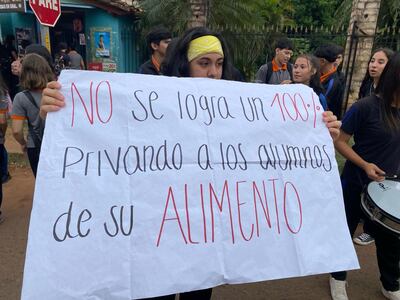 PARE
NO se logra un 100%
Privando a los alumnos
de su ALIMENTO